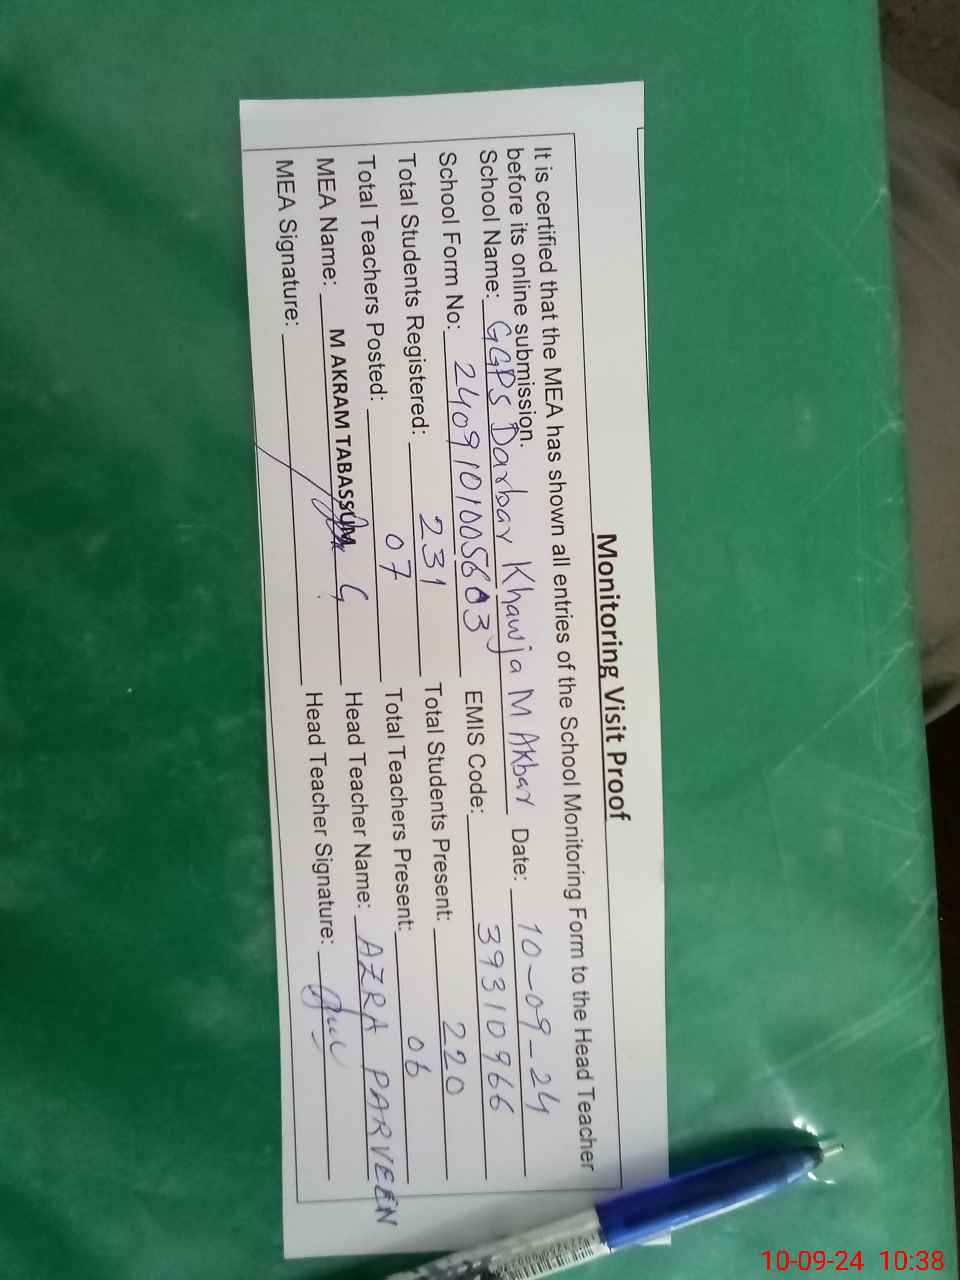 Monitoring Visit Proof
It is certified that the MEA has shown all entries of the School Monitoring Form to the Head Teacher
before its online submission.
School Name: GGPS Darbar Khawja M Akbar Date: 10-09-24
School Form No: 2409101005603 EMIS Code: 39310966
Total Students Registered: 231 Total Students Present: 220
Total Teachers Posted: 07 Total Teachers Present: 06
MEA Name: M AKRAM TABASSUM Head Teacher Name: AZRA PARVEEN
MEA Signature: Head Teacher Signature:
10-09-24 10:38